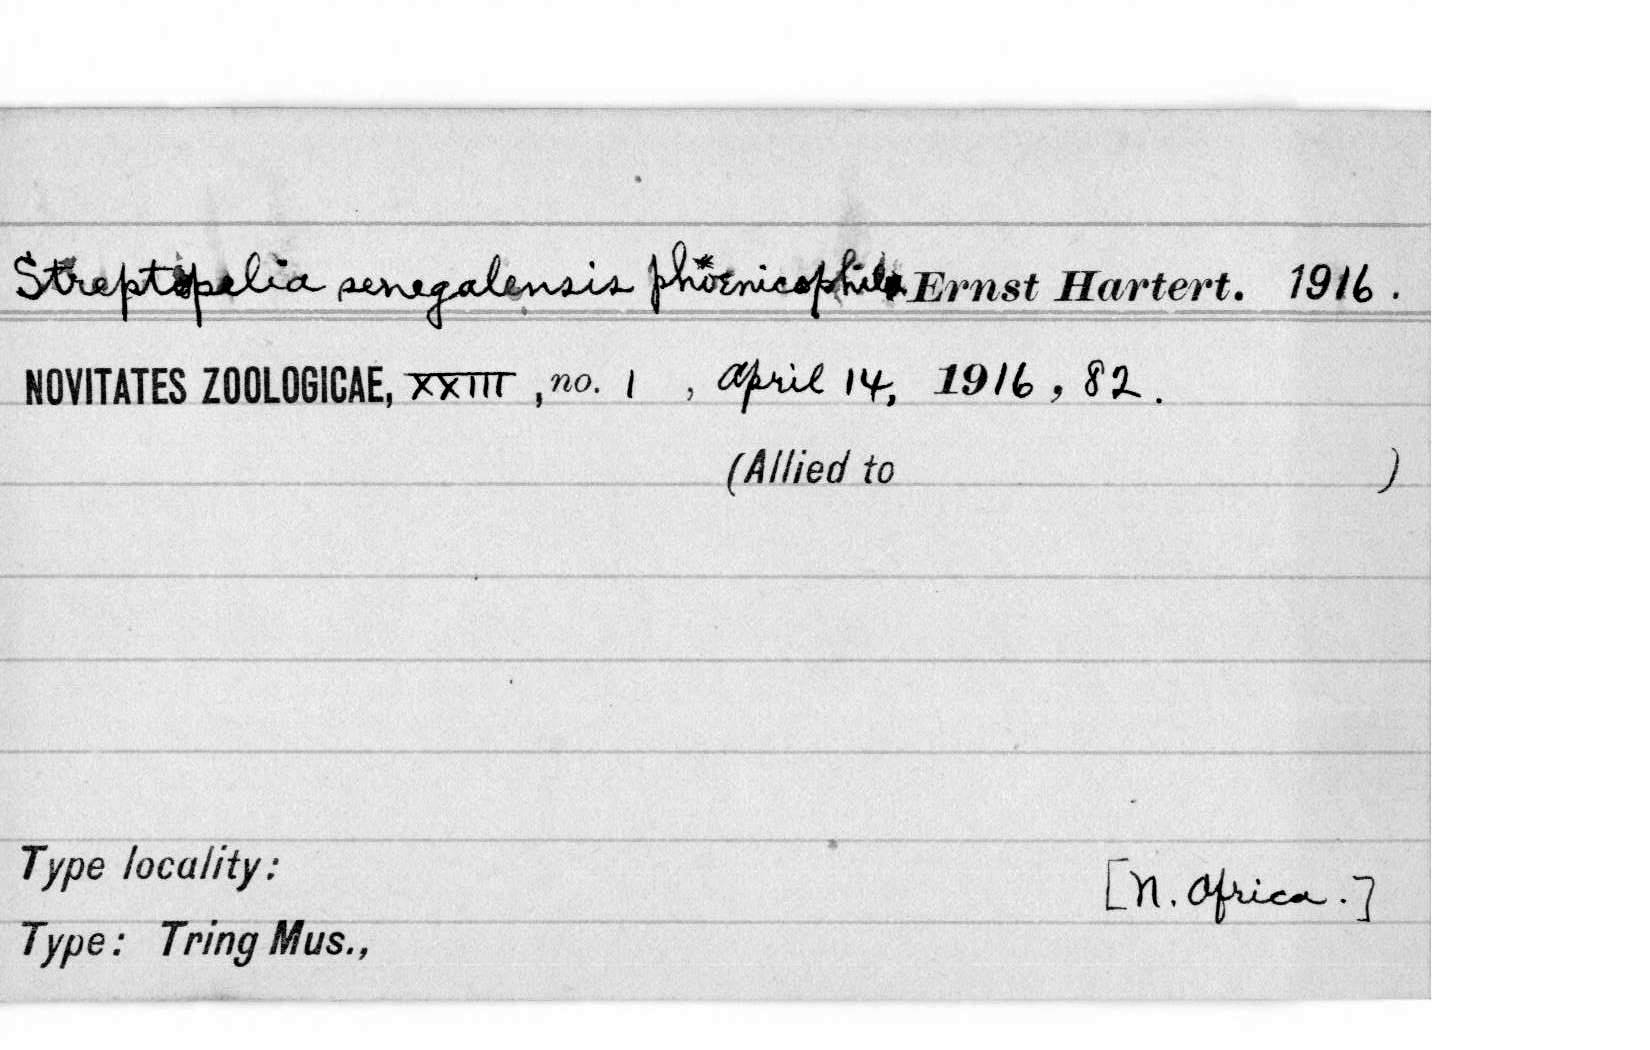 Streptopelia senegalensis phoenicophila Ernst Hartert. 1916.
NOVITATES ZOOLOGICAE, XXIII, no. 1, April 14, 1916, 82.
(Allied to )
Type locality:
[N. Africa.]
Type: Tring Mus.,